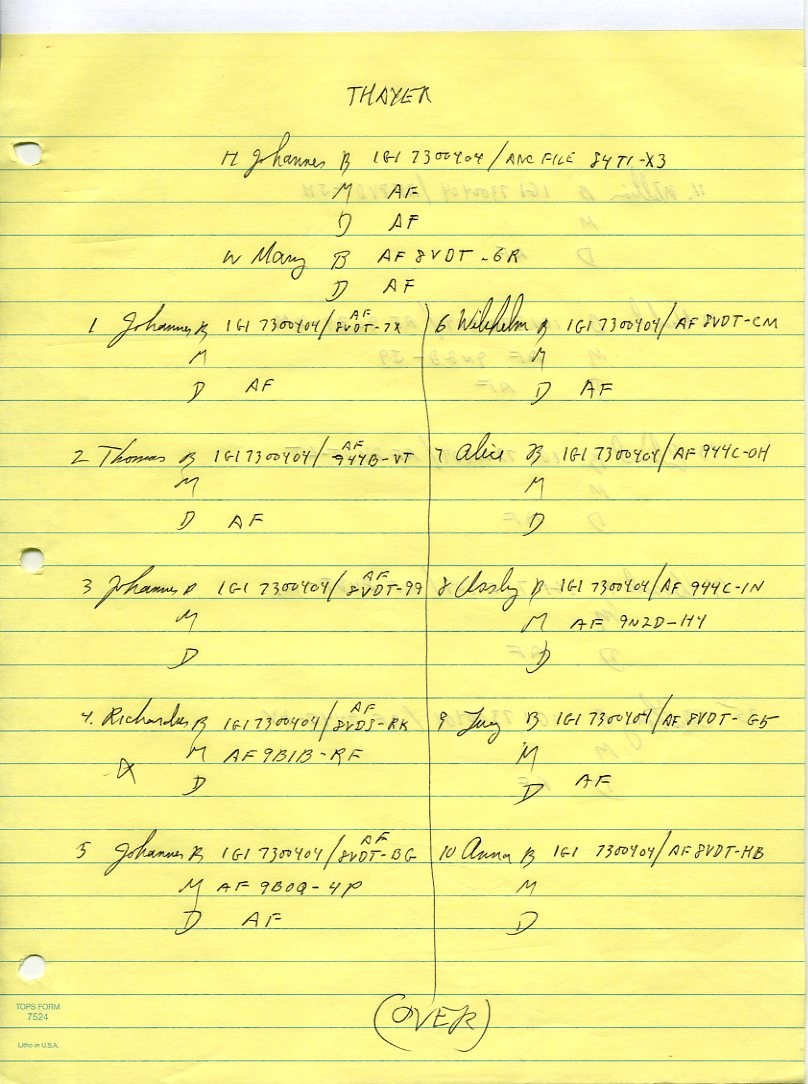 THAYER
H Johannes B IGI 7300404 / ANC FILE 84T1-X3
M AF
D AF
W Mary B AF 8VDT-6R
D AF
1 Johannes B IGI 7300404 / AF 8VDT-7X
M
D AF
2 Thomas B IGI 7300404 / AF 944B-VT
M
D AF
3 Johannes B IGI 7300404 / AF 8VDT-99
M
D
4. Richardus B IGI 7300404 / AF 8VDS-RK
M AF 9B1B-RF
D
5 Johannes B IGI 7300404 / AF 8VDT-BG
M AF 9B0Q-4P
D AF
6 Wilhelm B IGI 7300404 / AF 8VDT-CM
M
D AF
7 Alice B IGI 7300404 / AF 944C-0H
M
D
8 B IGI 7300404 / AF 944C-1N
M AF 9N2D-H4
D
9 B IGI 7300404 / AF 8VDT-G5
M
D AF
10 Anna B IGI 7300404 / AF 8VDT-HB
M
D
(OVER)
TOPS FORM
7524
Litho in U.S.A.